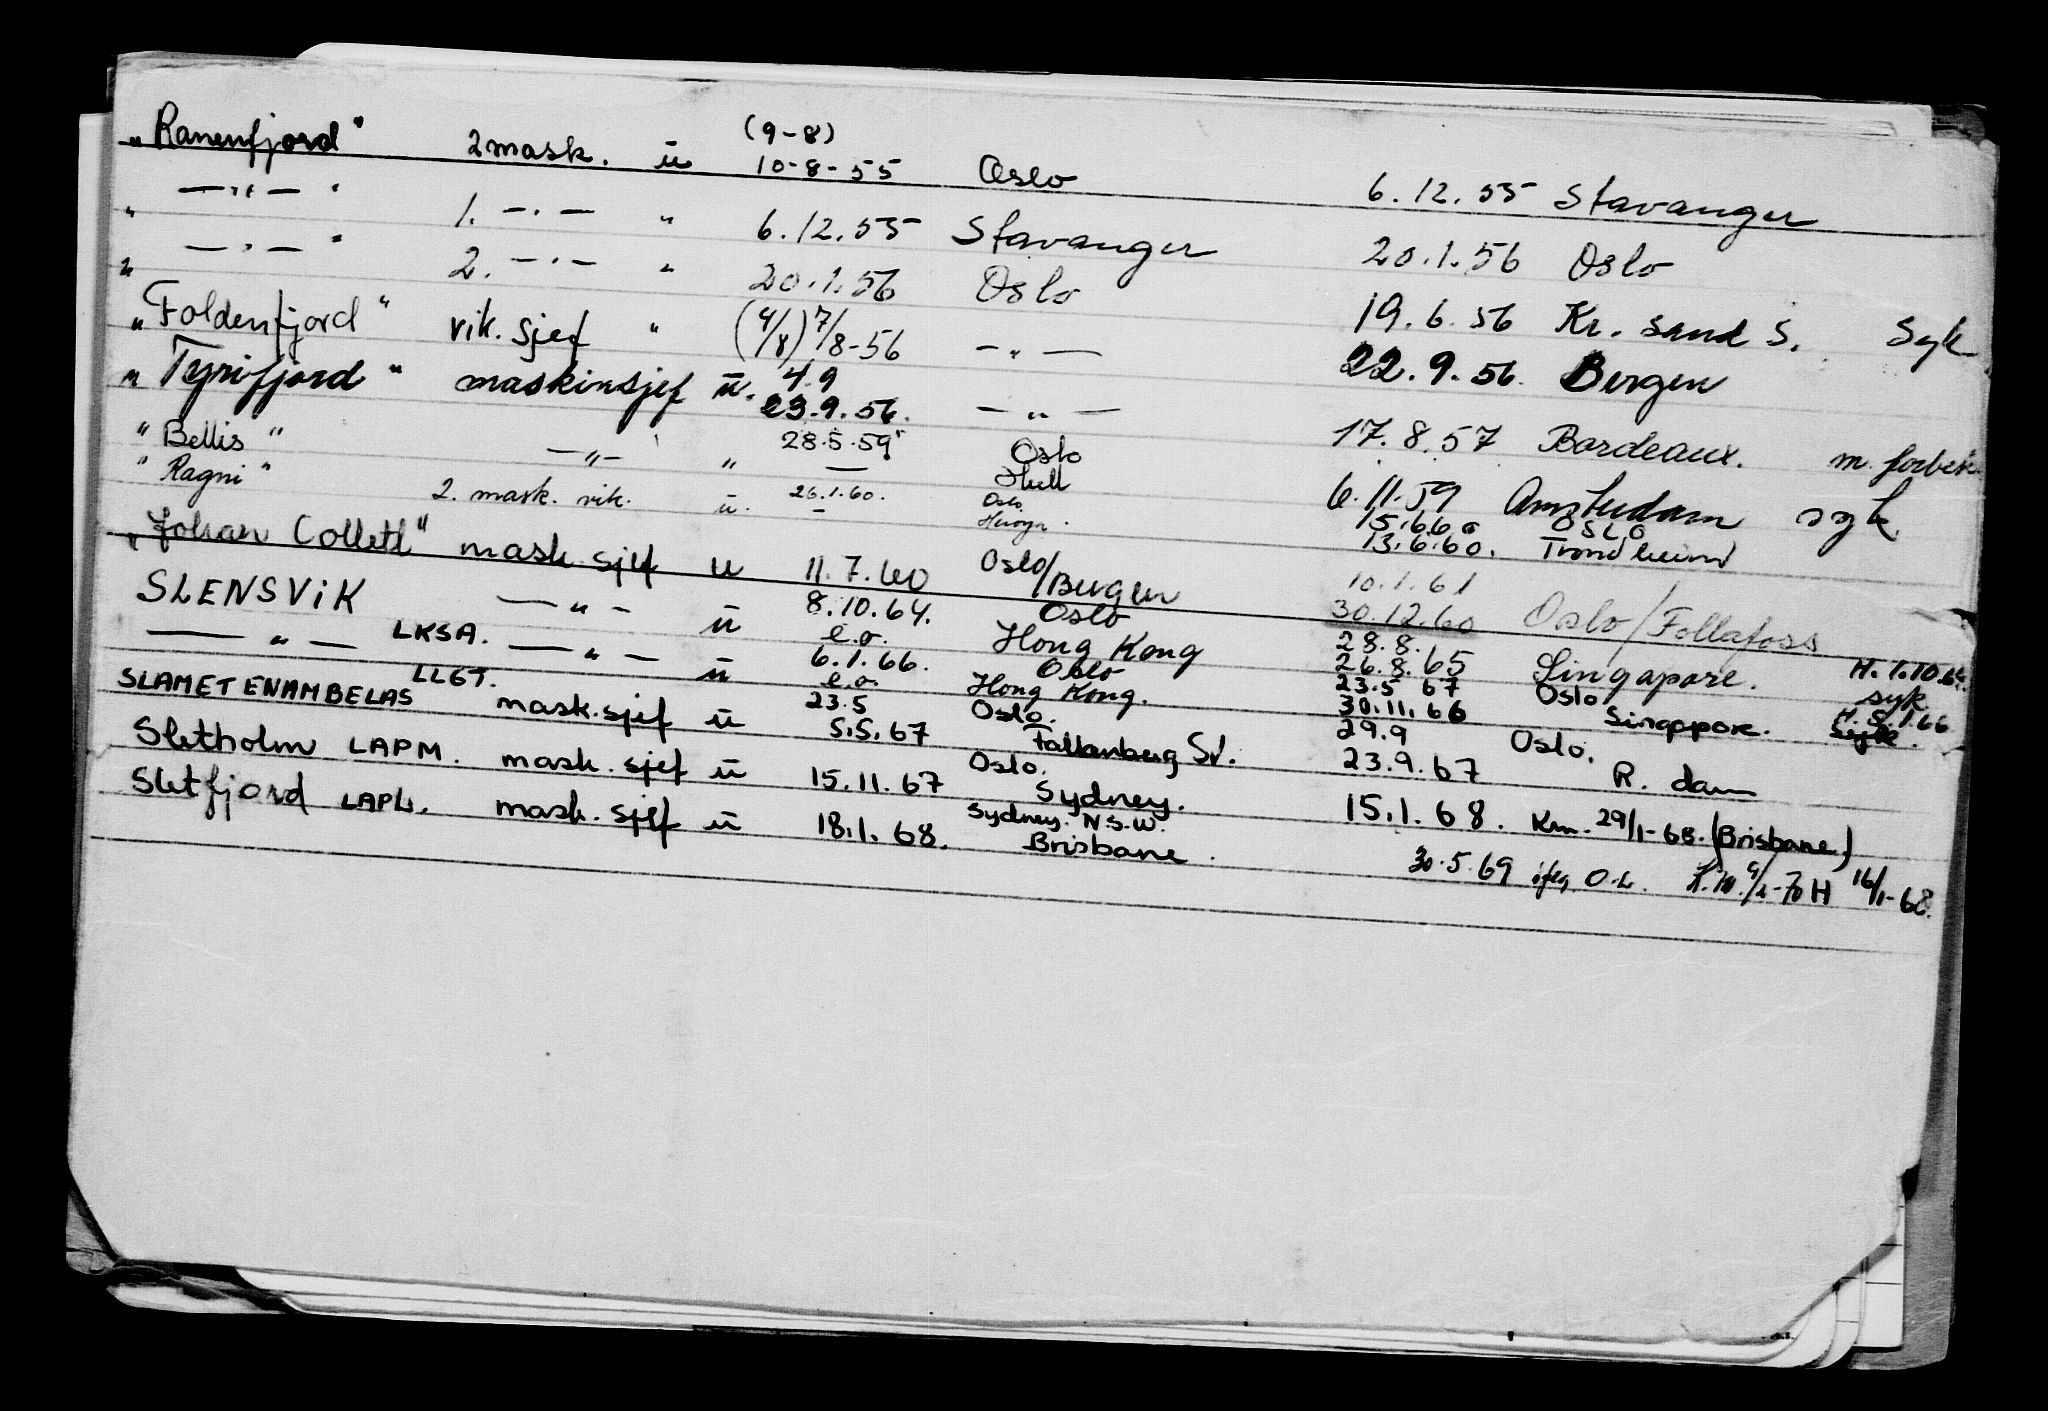 (9-8)
"Ranenfjord" 2 mask. ü 10-8-55 Oslo 6.12.55 Stavanger
" —"— " 1. —"— " 6.12.55 Stavanger 20.1.56 Oslo
" —"— " 2. —"— " 20.1.56 Oslo 19.6.56 Kr. sand S. Syk
"Foldenfjord" vik. sjef " (4/8) 7/8-56 —"— 22.9.56 Bergen
4.9
"Tyrifjord" maskinsjef ü. 23.9.56. —"— 17.8.57 Bordeaux. m. forbeh.
"Bellis" —"— " 28.5.59 Oslo 6.11.59 Amsterdam syk.
— Hull
"Ragni" 2. mask. vik. ü. 26.1.60. Oslo 15.6.60 OSLO
— 13.6.60. Trondheim
"Johan Collett" mask. sjef ü 11.7.60 Oslo/Bergen 10.1.61
30.12.60 Oslo/Follafoss
SLENSVIK —"— ü 8.10.64. Oslo 28.8. H. 1.10.64.
LKSA. e.o. Hong Kong 26.8.65 Singapore. syk
—"— —"— ü 6.1.66. Oslo 23.5 67 Oslo H. 5.1.66
LLGT. e.o. Hong Kong. 30.11.66 Singapore. syk.
SLAMET ENAMBELAS mask. sjef ü 23.5 Oslo. 29.9 Oslo.
5.5.67 Falkenberg Sv. 23.9.67 R. dam
Sletholm LAPM. mask. sjef ü 15.11.67 Oslo. 15.1.68. Km. 29/1-68. (Brisbane)
Sydney.
Sletfjord LAPL. mask. sjef ü 18.1.68. Sydney. N.S.W. 30.5.69 O.L. H 16/1-68.
Brisbane.